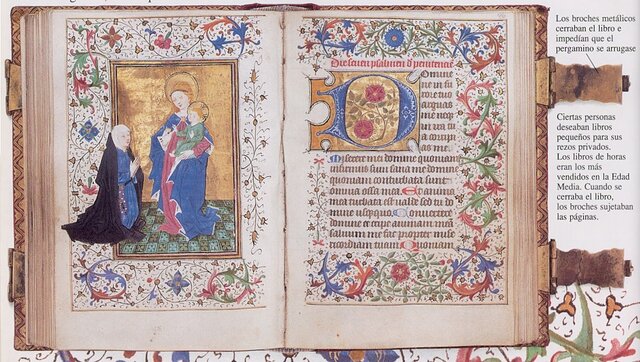 Omine
ne in fu
rore tuo
arguas
Miserere mei domine quoniam
infirmus sum sana me domine
quoniam conturbata sunt
omnia ossa mea Et anima
mea turbata est valde sed tu do
mine usquequo Convertere
domine et eripe animam meam
salvum me fac propter mise
ricordiam tuam Quoniam
Los broches metálicos
cerraban el libro e
impedían que el
pergamino se arrugase
Ciertas personas
deseaban libros
pequeños para sus
rezos privados.
Los libros de horas
eran los más
vendidos en la Edad
Media. Cuando se
cerraba el libro,
los broches sujetaban
las páginas.